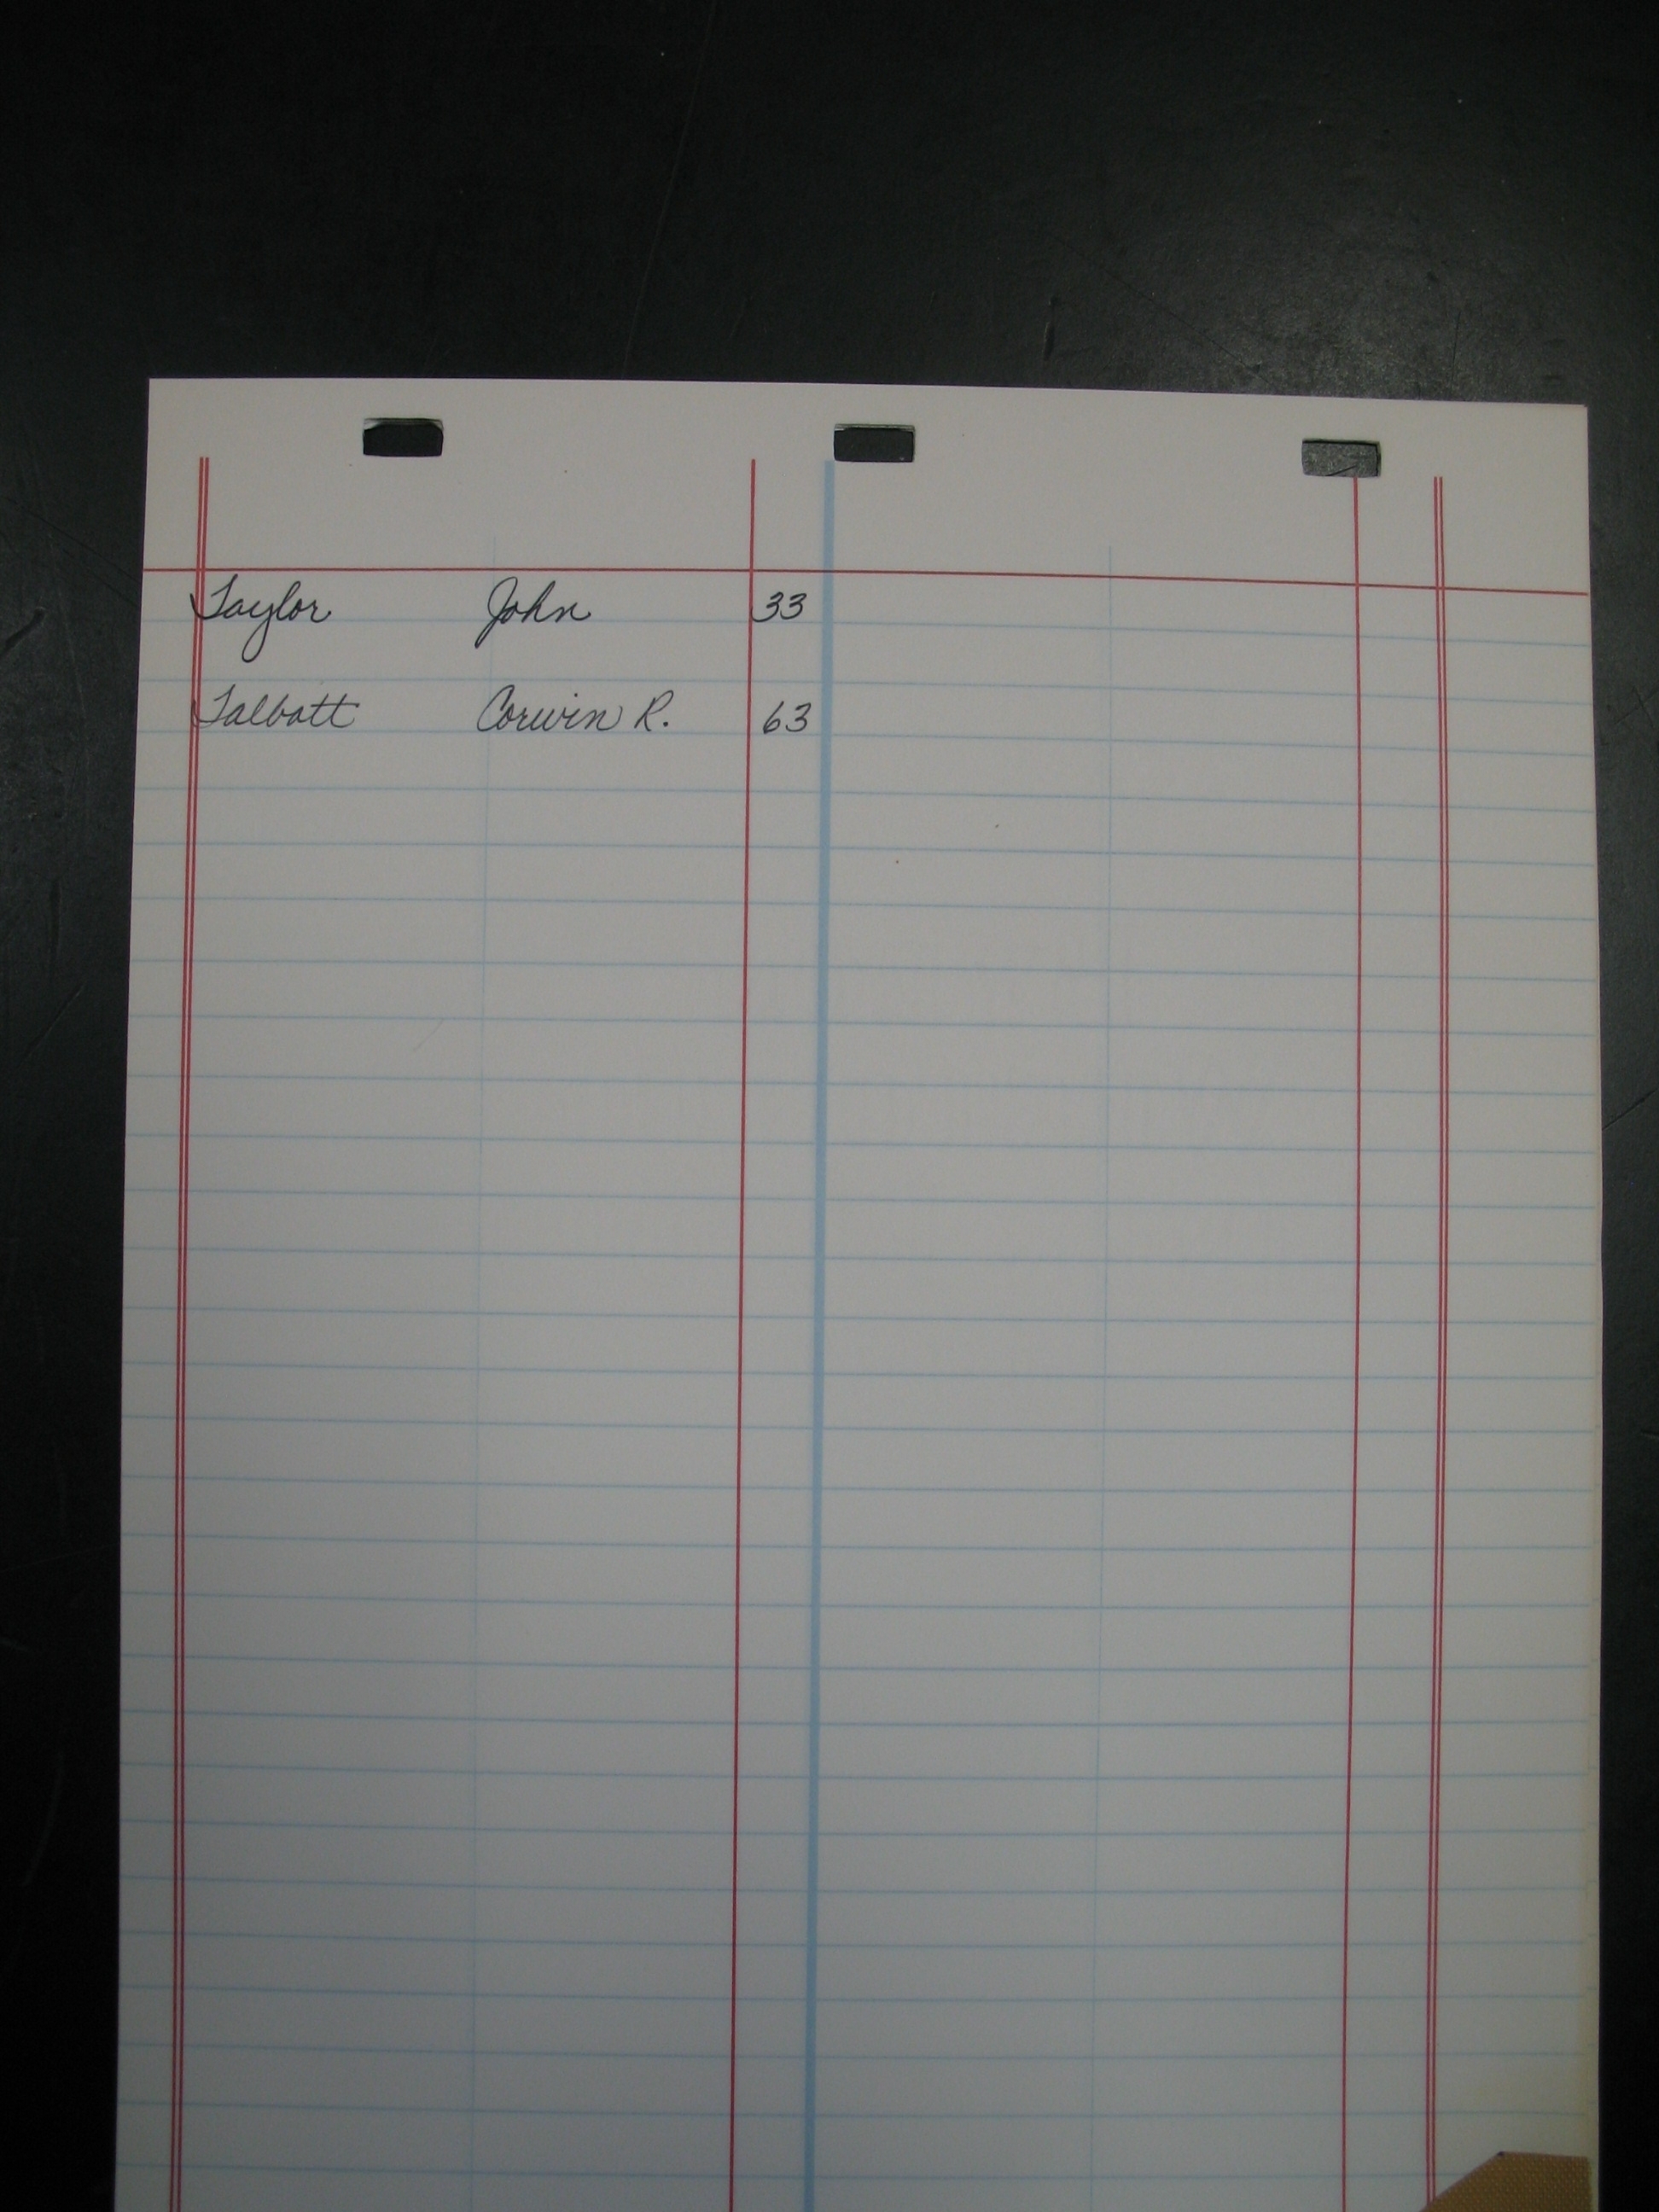 Taylor John 33
Talbott Corwin R. 63